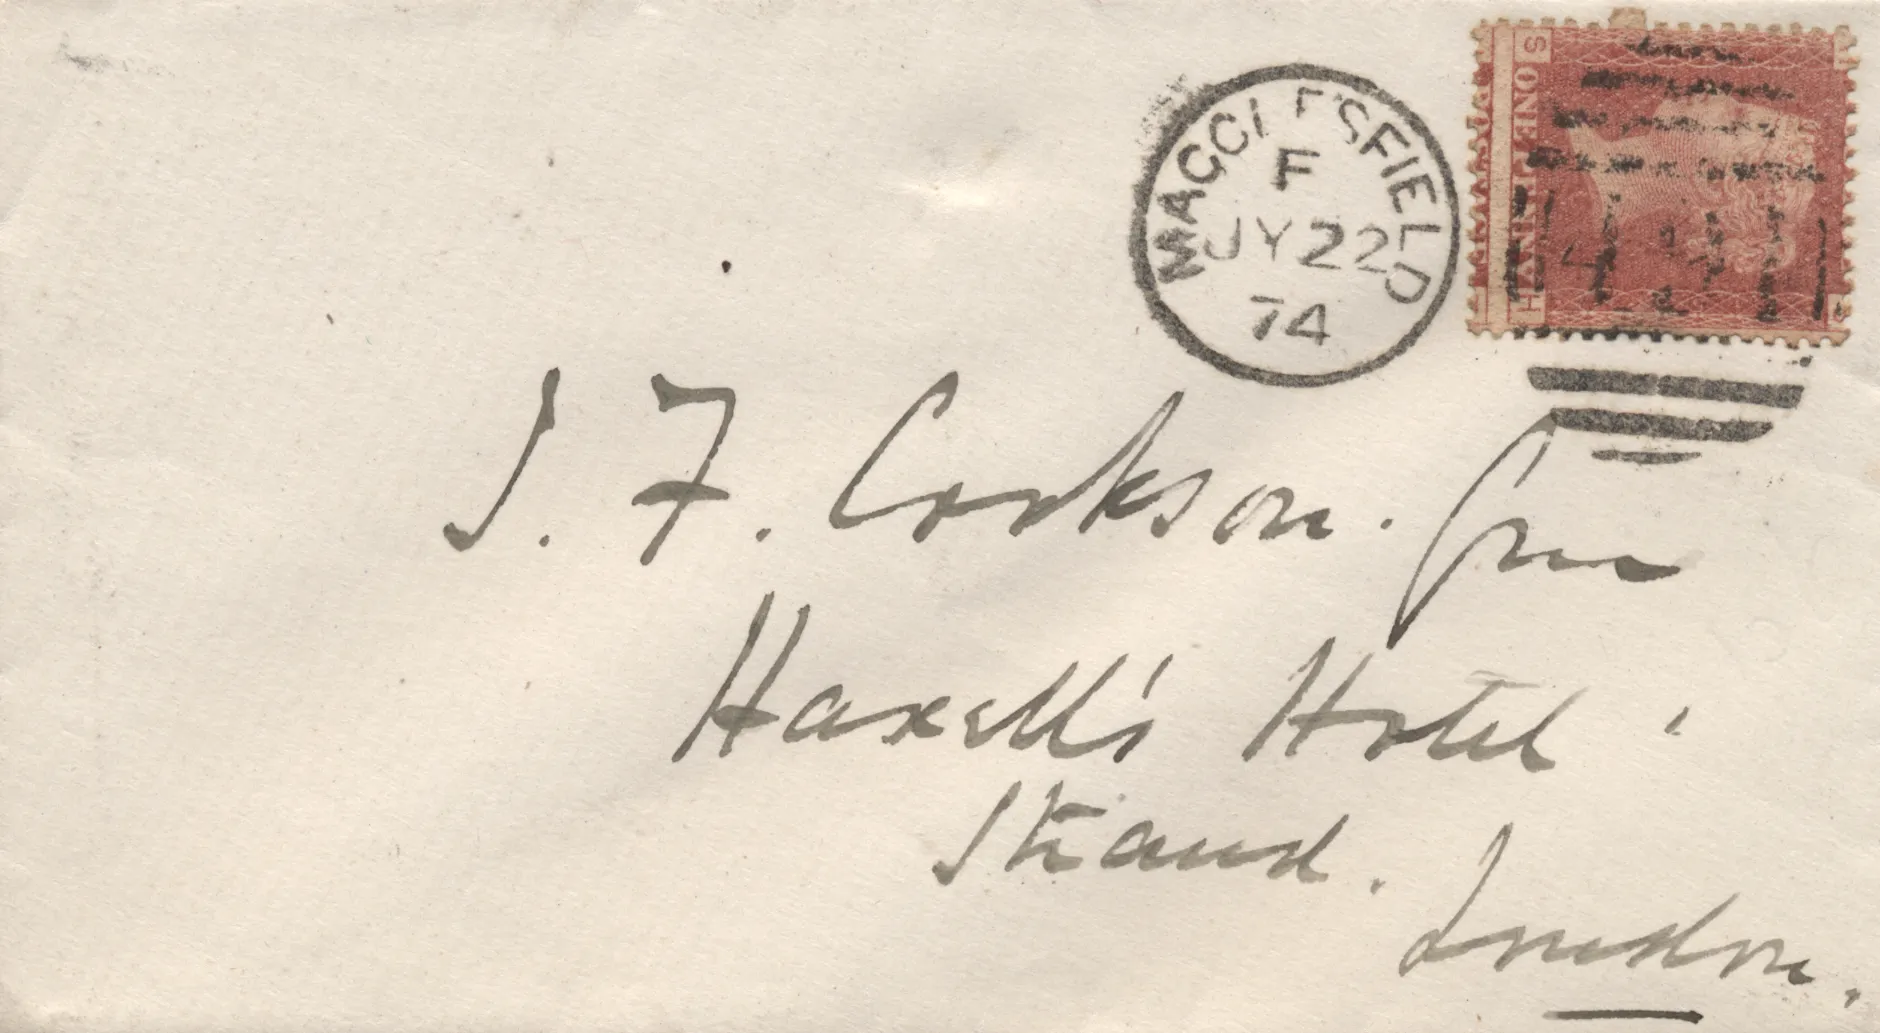 MACCLESFIELD
F
JY 22
74
ONE PENNY
S
H
J. F. Cookson.
Haxell's Hotel
Strand.
London.